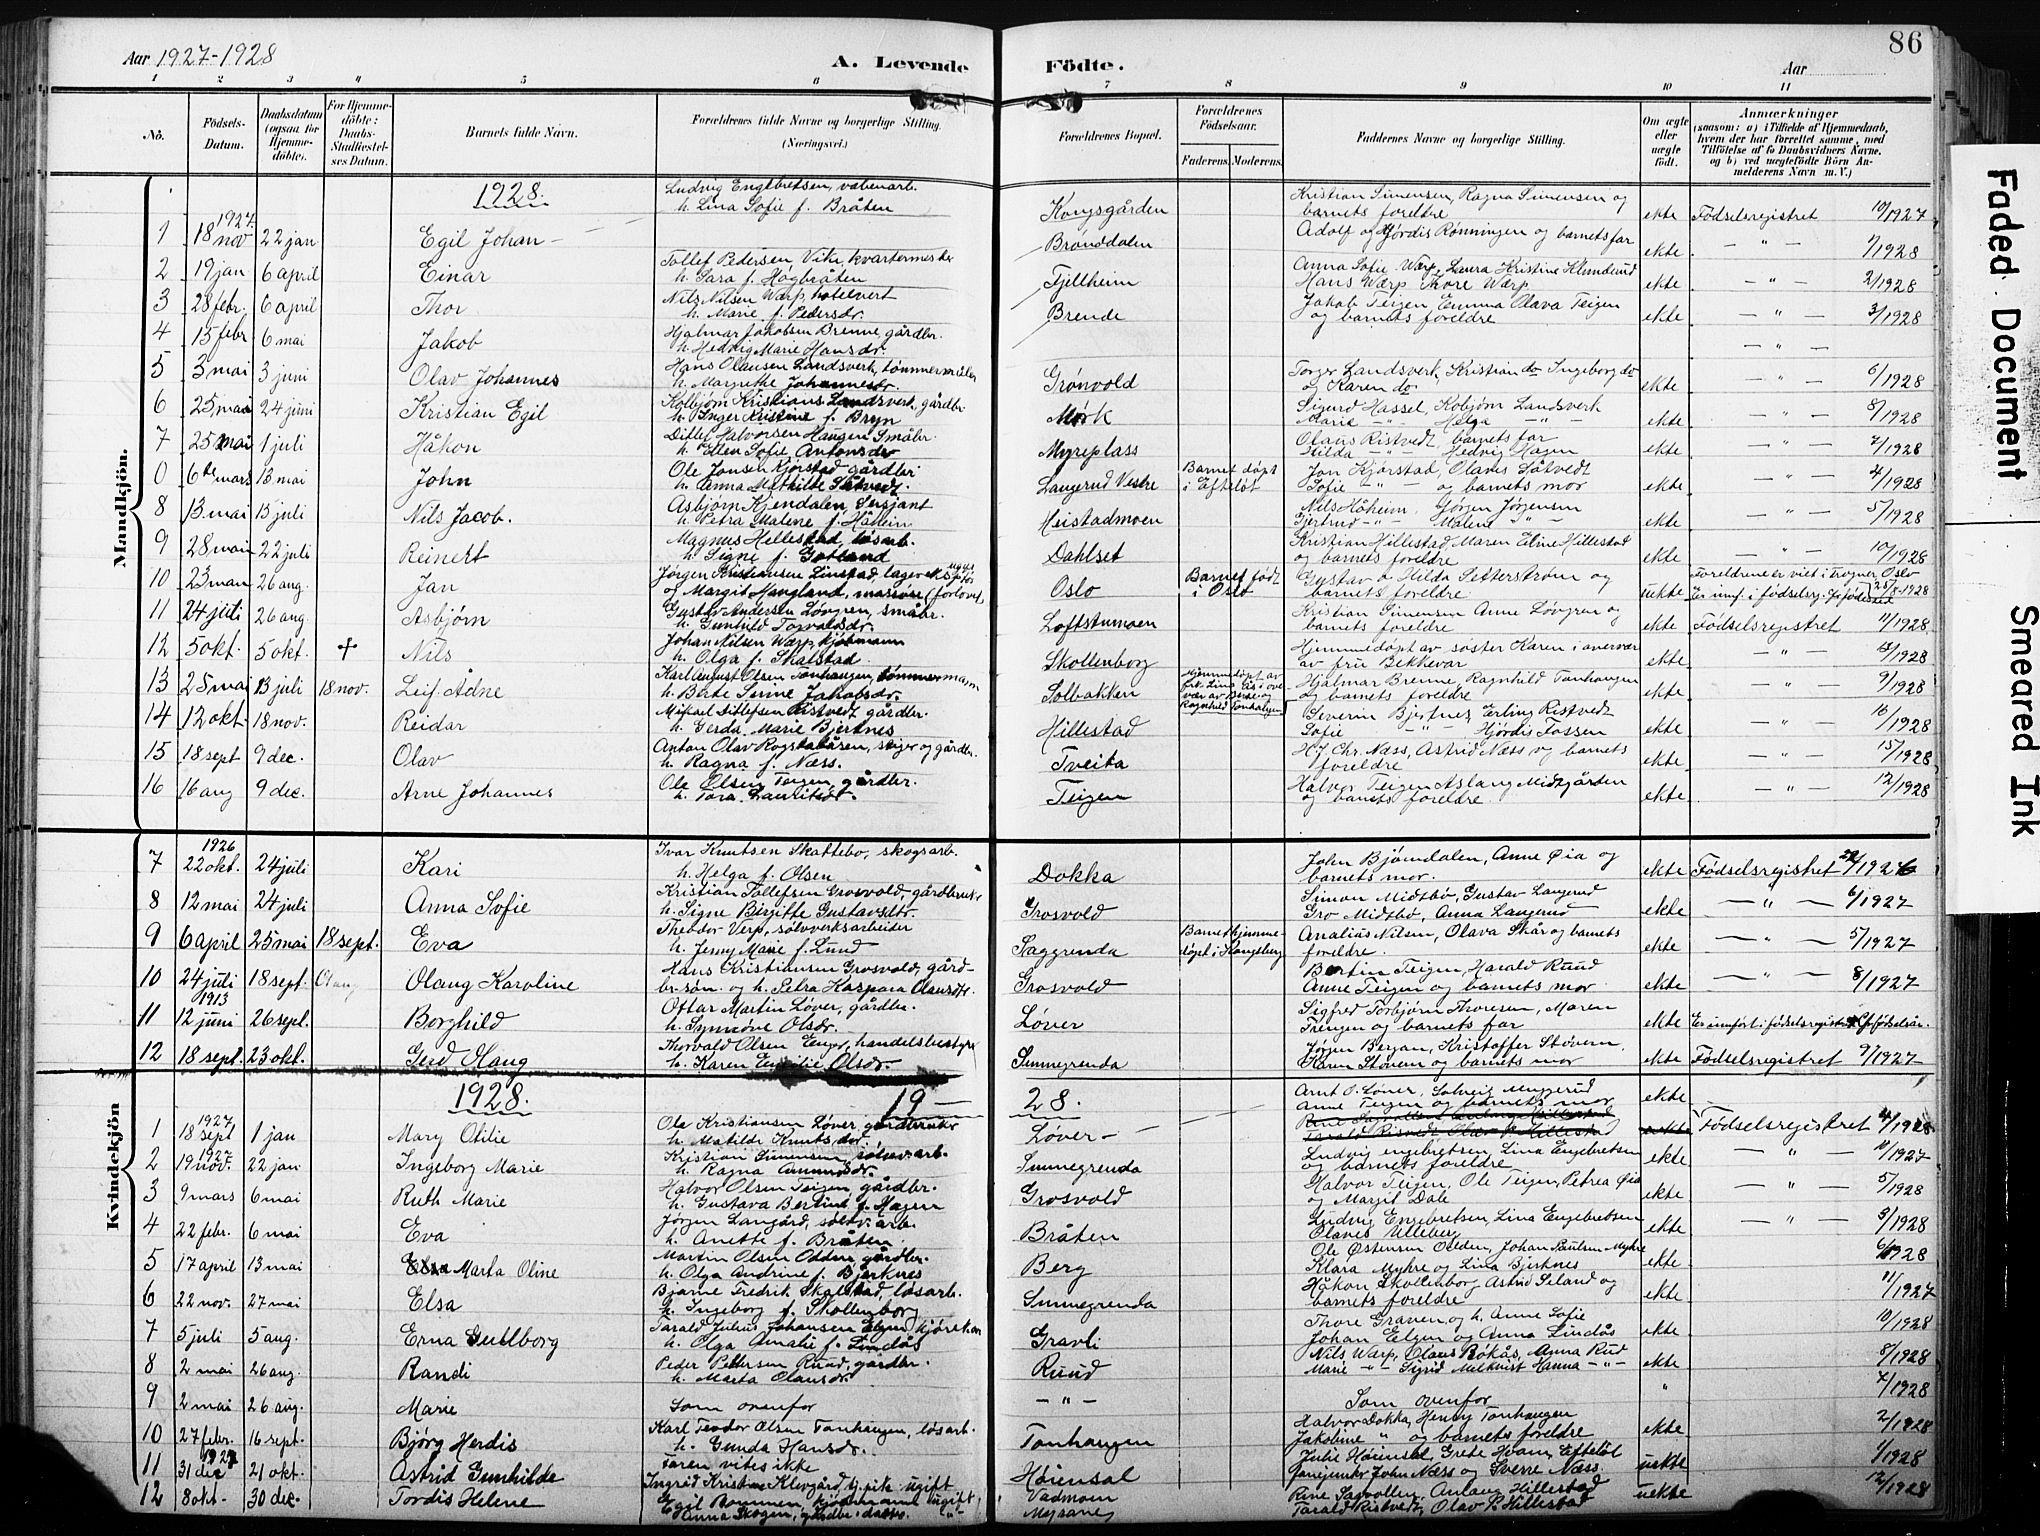 Aar 1927-1928
A. Levende
Födte.
Aar
86
1 2 3 " 5 6 7 8 9 10 11
No.
Födsels-Datum.
Daabsdatum (ogsaa for Hjemme-döbte).
For Hjemme-döbte: Daabs-Stadfæstelses Datum.
Barnets fulde Navn.
Forældrenes fulde Navne og borgerlige Stilling. (Næringsvei.)
Forældrenes Bopæl.
Forældrenes Födselsaar.
Faderens. Moderens.
Faddernes Navne og borgerlige Stilling.
Om ægte eller uægte födt.
Anmærkninger
(saasom: a) i Tilfælde af Hjemmedaab, hvem der har forrettet samme, med Tilföielse af to Daabsvidners Navne, og b) ved uægtefödte Börn Anmelderens Navn m. V.)
Mandkjön.
1928.
1 1927 18 nov 22 jan Egil Johan Ludvig Engebretsen, h. Lina Sofie f. Bråten Kongsgården Kristian Simensen, Ragna Simensen og barnets foreldre ekte Födselsregistret 10/1927
2 19 jan 6 april Einar Tollef Pedersen Vika, kvartermester h. Sara f. Høgbråten Adolf og Hjördis Rønningen og barnets far ekte — " — 1/1928
3 28 febr. 6 april Thor Nils Nilsen Wærp, hotelvert h. Marie f. Pedersdr. Anna Sofie Wærp, Laura Kristine Hans Wærp Thore Wærp ekte — " — 2/1928
4 15 febr 6 mai Jakob Hjalmar Jakobsen Brenne, gårdbr. h. Hedvig Marie Hansdr. Brende Jakob Teigen Emma Olava Teigen og barnets foreldre ekte — " — 3/1928
5 3 mai 3 juni Olav Johannes Hans Olausen Landsverk, h. Margrethe Johannesdr. Grönvold Torger Landsverk, Kristian do Ingeborg do og Karen do ekte — " — 6/1928
6 25 mai 24 juni Kristian Egil Kolbjørn Kristians Landsverk, gårdbr h. Inger Kristine f. Bryn Mørk Sigurd Hassel, Kobjørn Landsverk Marie — " — Helga — " — ekte — " — 8/1928
7 25 mai 1 juli Håkon Ditlef Halvorsen Haugen Småbr. h. Ellen Sofie Antonsdr Myreplass Olaus Ristvedt, barnets far Hilda — " — Hedvig Hagen ekte — " — 7/1928
0 6te mars 13 mai John Ole Jansen Kjørstad gårdbr. h. Anna Mathilde Såtvedt Langerud Vestre Barnet döpt i Efteløt Jon Kjørstad, Olaves Såtvedt Sofie — " — og barnets mor ekte — " — 4/1928
8 13 mai 15 juli Nils Jacob. Asbjørn Kjendalen, Sersjant h. Petra Malene f. Håheim Heistadmoen Nils Håheim, Jørgen Jørgensen Gjertrud — " — Malene — " — ekte — " — 5/1928
9 28 mai 22 juli Reinert Magnus Hillestad, løsarb. h. Signe f. Gotland Dahlset Kristian Hillestad, Maren Eline Hillestad og barnets foreldre ekte — " — 10/1928
10 23 mai 26 aug. Jan Jørgen Kristiansen Linstad, og Margit Haugland, (forlovet) Oslo Barnet födt i Oslo Gustav o Hilda Setterstrøm og barnets foreldre uekte Foreldrene er viet i Oslo 25/8-1928
11 24 juli 26 aug. Asbjørn Gustav Andersen Løvgren, småbr. h. Gunhild Torvaldsdr. Loftstumoen Kristian Simensen Anne Løvgren og barnets foreldre ekte Födselsregistret 11/1928
12 5 okt. 5 okt. † Nils Johan Nilsen Wærp kjøbmann h. Olga f. Skalstad Skollenborg Hjemmedøpt av søster Karen i overvær av fru Bekkevar ekte — " — 1928
13 25 mai 13 juli 18 nov. Leif Ådne Karl August Olsen Tonhaugen, tømmermann h. Berte Serine Jakobsdr. Solbakken Hjemmedøpt av Ragnhild Tonhaugen Hjalmar Brenne, Ragnhild Tonhaugen og barnets foreldre ekte — " — 9/1928
14 12 okt. 18 nov. Reidar Mikael Ditlefsen Ristvedt gårdbr. h. Gerda Marie Bjertnes Hillestad Severin Bjertnes, Erling Ristvedt Sofie — " — Hjördis Fossen ekte — " — 16/1928
15 18 sept 9 dec. Olav Anton Olav Rogstabåsen, skiger og gårdbr. h. Ragna f. Næss. Tveita Chr. Næss, Astrid Næss og barnets foreldre ekte — " — 15/1928
16 16 aug 9 dec. Arne Johannes Ole Olsen Teigen, gårdbr. h. Tora Teigen Halvor Teigen Aslaug Midtgården og barnets foreldre ekte — " — 12/1928
7 1926 22 okt. 24 juli Kari Ivar Knutsen Skattebo, skogsarb. h. Helga f. Olsen Dokka John Bjørndalen, Anne Øia og barnets mor. ekte Födselsregistret
8 12 mai 24 juli Anna Sofie Kristian Tollefsen Grosvold, gårdbruker h. Signe Birgitte Gustavsdtr. Grosvold Simon Midtbø, Gustav Langerud Gro Midtbø, Anna Langerud ekte — " — 6/1927
9 6 april 25 mai 18 sept. Eva Theodor Verp, sølvverksarbeider h. Jenny Marie f. Lund Saggrenda Barnet hjemmedøpt i Kongsberg Analius Nilsen, Olava Skår og barnets foreldre. ekte — " — 5/1927
10 24 juli 18 sept. Olaug Karoline Hans Kristiansen Grosvold, gårdbr. søn. og h. Petra Kaspara Olausdtr Grosvold Bertin Teigen, Harald Ruud Anne Teigen og barnets mor ekte — " — 8/1927
11 1913 12 juni 26 sept. Borghild Ottar Martin Løver, gårdbr. h. Synnöve Olsdr. Løver Sigfred Torbjørn Thoresen, Maren Teigen og barnets far ekte Er innført i födselsregistret f. födselsår.
12 18 sept. 23 okt. Gerd Haug Thorvald Olsen Enger, handelsbestyrer h. Karen Emilie Olsdr. Simmegrenda Jørgen Bergan, Kristoffer Støvern Karen Støvern og barnets mor ekte Födselsregistret 9/1927
Kvindekjön
1928. 19 — 28.
1 1927 18 sept 1 jan Mary Otilie Ole Kristiansen Løver, gårdbruker h. Matilde Knutsdr. Løver Arnt O. Løver, Solveig Myggerud Anne Teigen og barnets mor ekte Födselsregistret 4/1928
2 1927 19 nov. 22 jan Ingeborg Marie Kristian Simensen, sølvv. arb. h. Ragna Amundsdr. Simmegrenda Ludvig Engebretsen, Lina Engebretsen og barnets foreldre ekte — " — 11/1927
3 9 mars 6 mai Ruth Marie Halvor Olsen Teigen, gårdbr. h. Gustava Bertine f. Hagen Grosvold Halvor Teigen, Ole Teigen, Petrea Øia og Margit Dale ekte — " — 5/1928
4 22 febr. 6 mai Eva Jørgen Langård, sølvv. arb. h. Anette f. Bråten Bråten Ludvig Engebretsen, Lina Engebretsen Olavis Ulleberg ekte — " — 3/1928
5 17 april 13 mai Marta Oline Martin Olsen Odden gårdbr. h. Olga Andrine f. Bjerknes Berg Ole Østensen Odden, Johan Paulsen Myhre Klara Myhre og Lina Bjertnes ekte 6/1928
6 22 nov. 27 mai Elsa Bjarne Fredrik Skalstad, løsarb. h. Ingeborg f. Skollenborg Simmegrenda Håkon Skollenborg Astrid Seland og barnets foreldre ekte 11/1927
7 5 juli 5 aug. Erna Gullborg Tarald Julius Johansen Elgen, h. Olga Amalie f. Lindås Gravli Thore Graven og h. Anne Sofie Johan Elgen og Anna Lindås ekte 10/1928
8 2 mai 26 aug. Randi Peder Pettersen Ruud, gårdbr. h. Marta Olausdr. Ruud Nils Warp, Olaus Bökås, Anna Rud Marie — " — Sigrid Hanna — " — ekte 8/1928
9 2 mai 26 aug. Marie Som ovenfor — " — Som ovenfor " 7/1928
10 27 febr. 16 sept. Bjørg Herdis Karl Teodor Olsen Tonhaugen, løsarb. h. Gunda Hansdr. Tonhaugen Halvor Dokka, Henry Tonhaugen Jakobine " og barnets foreldre ekte 2/1928
11 1927 31 dec 21 okt. Astrid Gunhilde Faren vites ikke Ingrid Kristine Klevgård, ugift Høiensal Julie Høiensal, Grete Hvam, Efteløt John Næss og Sverre Næss. uekte 1/1928
12 8 okt. 30 dec. Tordis Helene Egil Bommen, ugift Anna Skogen, gårdbr. datter. Vadmoen Rine Sagvollen, Aslaug Hillestad Tarald Ristvedt, Olav P. Hillestad uekte 12/1928
Faded Document
Smeared Ink